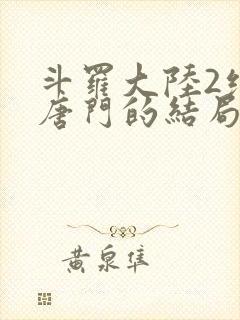 斗羅大陸2
唐門的結局
黃泉隼